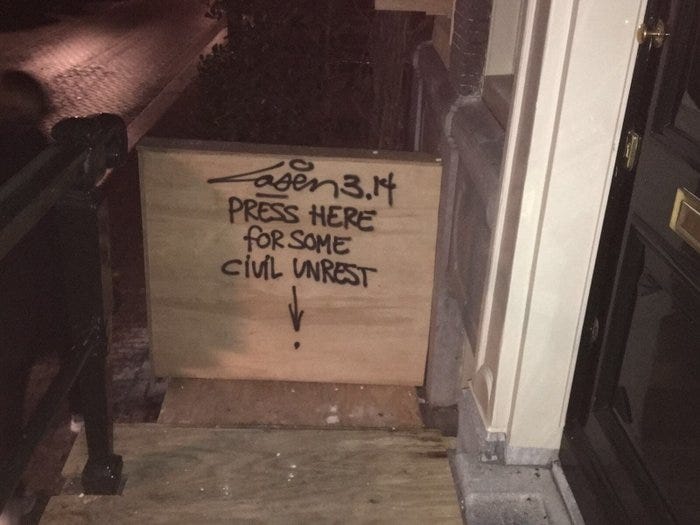 Laser 3.14
PRESS HERE
FOR SOME
CIVIL UNREST